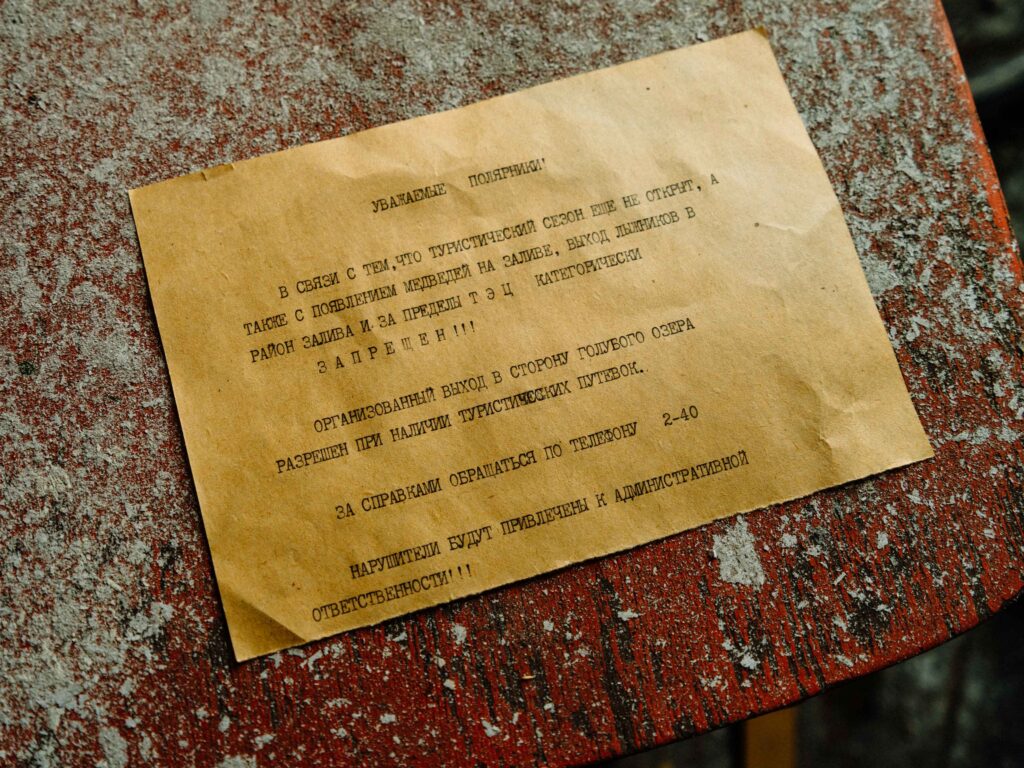 УВАЖАЕМЫЕ ПОЛЯРНИКИ!
В СВЯЗИ С ТЕМ,ЧТО ТУРИСТИЧЕСКИЙ СЕЗОН ЕЩЕ НЕ ОТКРЫТ, А
ТАКЖЕ С ПОЯВЛЕНИЕМ МЕДВЕДЕЙ НА ЗАЛИВЕ, ВЫХОД ЛЫЖНИКОВ В
РАЙОН ЗАЛИВА И ЗА ПРЕДЕЛЫ Т Э Ц КАТЕГОРИЧЕСКИ
З А П Р Е Щ Е Н ! ! !
ОРГАНИЗОВАННЫЙ ВЫХОД В СТОРОНУ ГОЛУБОГО ОЗЕРА
РАЗРЕШЕН ПРИ НАЛИЧИИ ТУРИСТИЧЕСКИХ ПУТЕВОК.
ЗА СПРАВКАМИ ОБРАЩАТЬСЯ ПО ТЕЛЕФОНУ 2-40
НАРУШИТЕЛИ БУДУТ ПРИВЛЕЧЕНЫ К АДМИНИСТРАТИВНОЙ
ОТВЕТСТВЕННОСТИ!!!